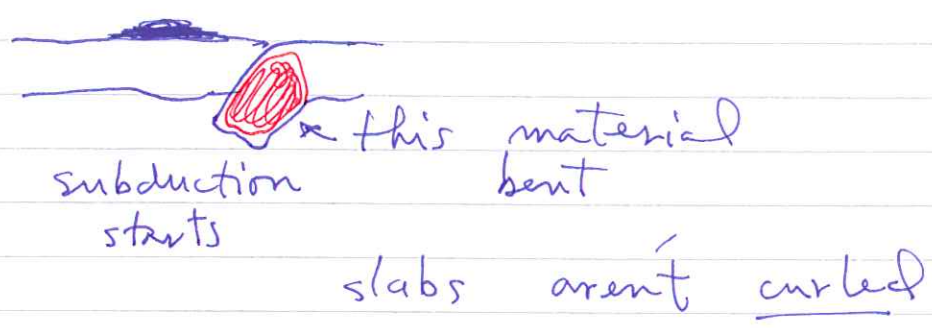 this material
subduction bent
starts
slabs aren't curled